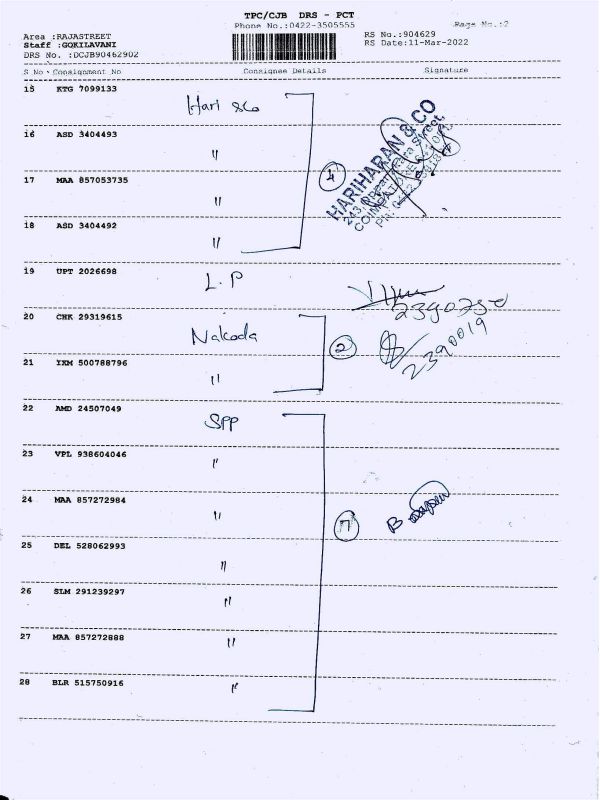 TPC/CJB DRS - PCT
Phone No.:0422-3505555
Page No.:2
Area :RAJASTREET
Staff :GOKILAVANI
DRS No. :DCJB90462902
RS No.:904629
RS Date:11-Mar-2022
S No Consignment No Consignee Details Signature
15 KTG 7099133 Hari & Co
16 ASD 3404493 "
17 MAA 857053735 "
18 ASD 3404492 "
4
HARIHARAN & CO
243, Street,
COIMBATORE
19 UPT 2026698 L.P
2390750
20 CHK 29319615 Nakoda
2
2390019
21 YXM 500788796 "
22 AMD 24507049 SPP
23 VPL 938604046 "
24 MAA 857272984 "
7
B
25 DEL 528062993 "
26 SLM 291239297 "
27 MAA 857272888 "
28 BLR 515750916 "